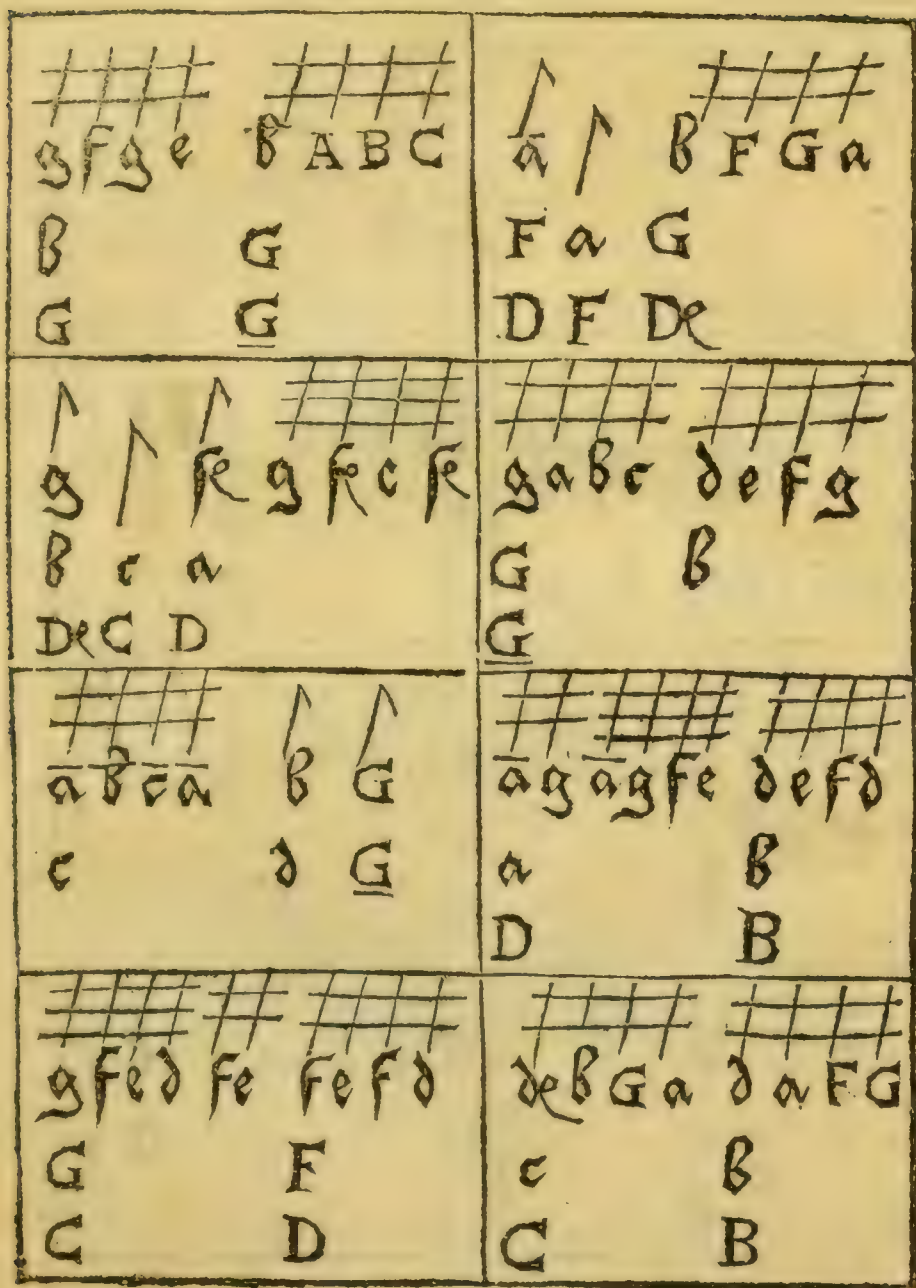 g f g e b̄ A B C
B G
G G̲
ā b F G a
F a G
D F De
g fe g fe c fe
B c a
De C D
g a b c d e f g
G B
G̲
ā b̄ c̄ ā b G
c d G̲
ā g ā g f e d e f d
a B
D B
g f e d f e f e f d
G F
C D
de b G a d a F G
c B
C B